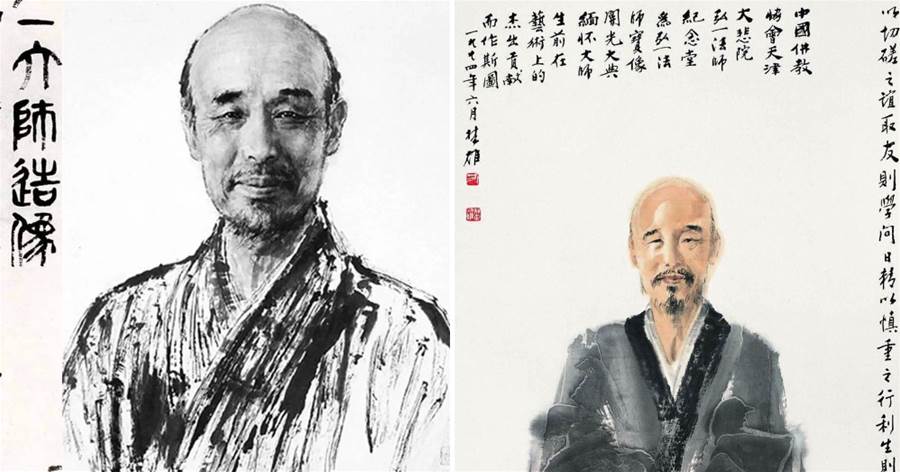 一大師造像
以切磋之誼取友則學問日精以慎重之行利生則
中國佛教
協會天津
大悲院
弘一法師
紀念堂
為弘一法
師寶像
開光大典
緬懷大師
生前在
藝術上的
杰出貢献
而作斯圖
一九九四年六月